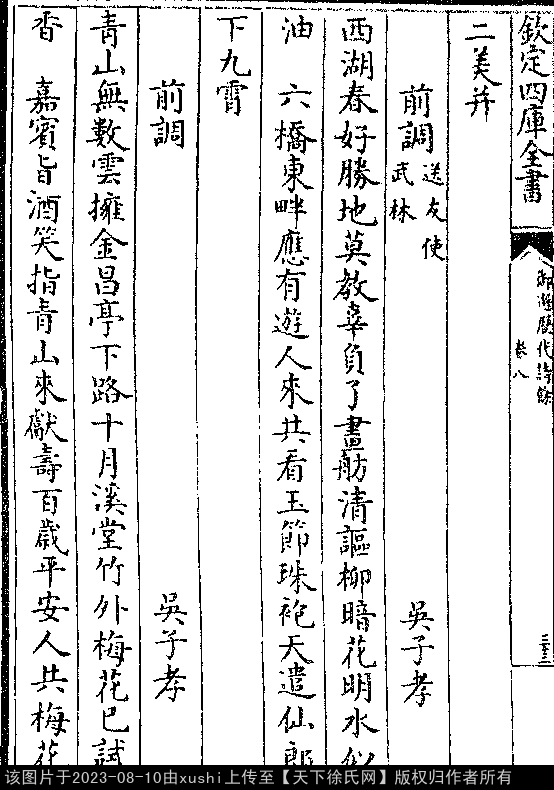 欽定四庫全書
御選歷代詩餘
卷八
三十三
二美并
前調 送友使武林 吳子孝
西湖春好勝地莫教辜負了畫舫清謳柳暗花明水似
油 六橋東畔應有遊人來共看玉節珠袍天遣仙郎
下九霄
前調 吳子孝
青山無數雲擁金昌亭下路十月溪堂竹外梅花已試
香 嘉賓旨酒笑指青山來獻壽百歲平安人共梅花
该图片于2023-08-10由xushi上传至【天下徐氏网】版权归作者所有